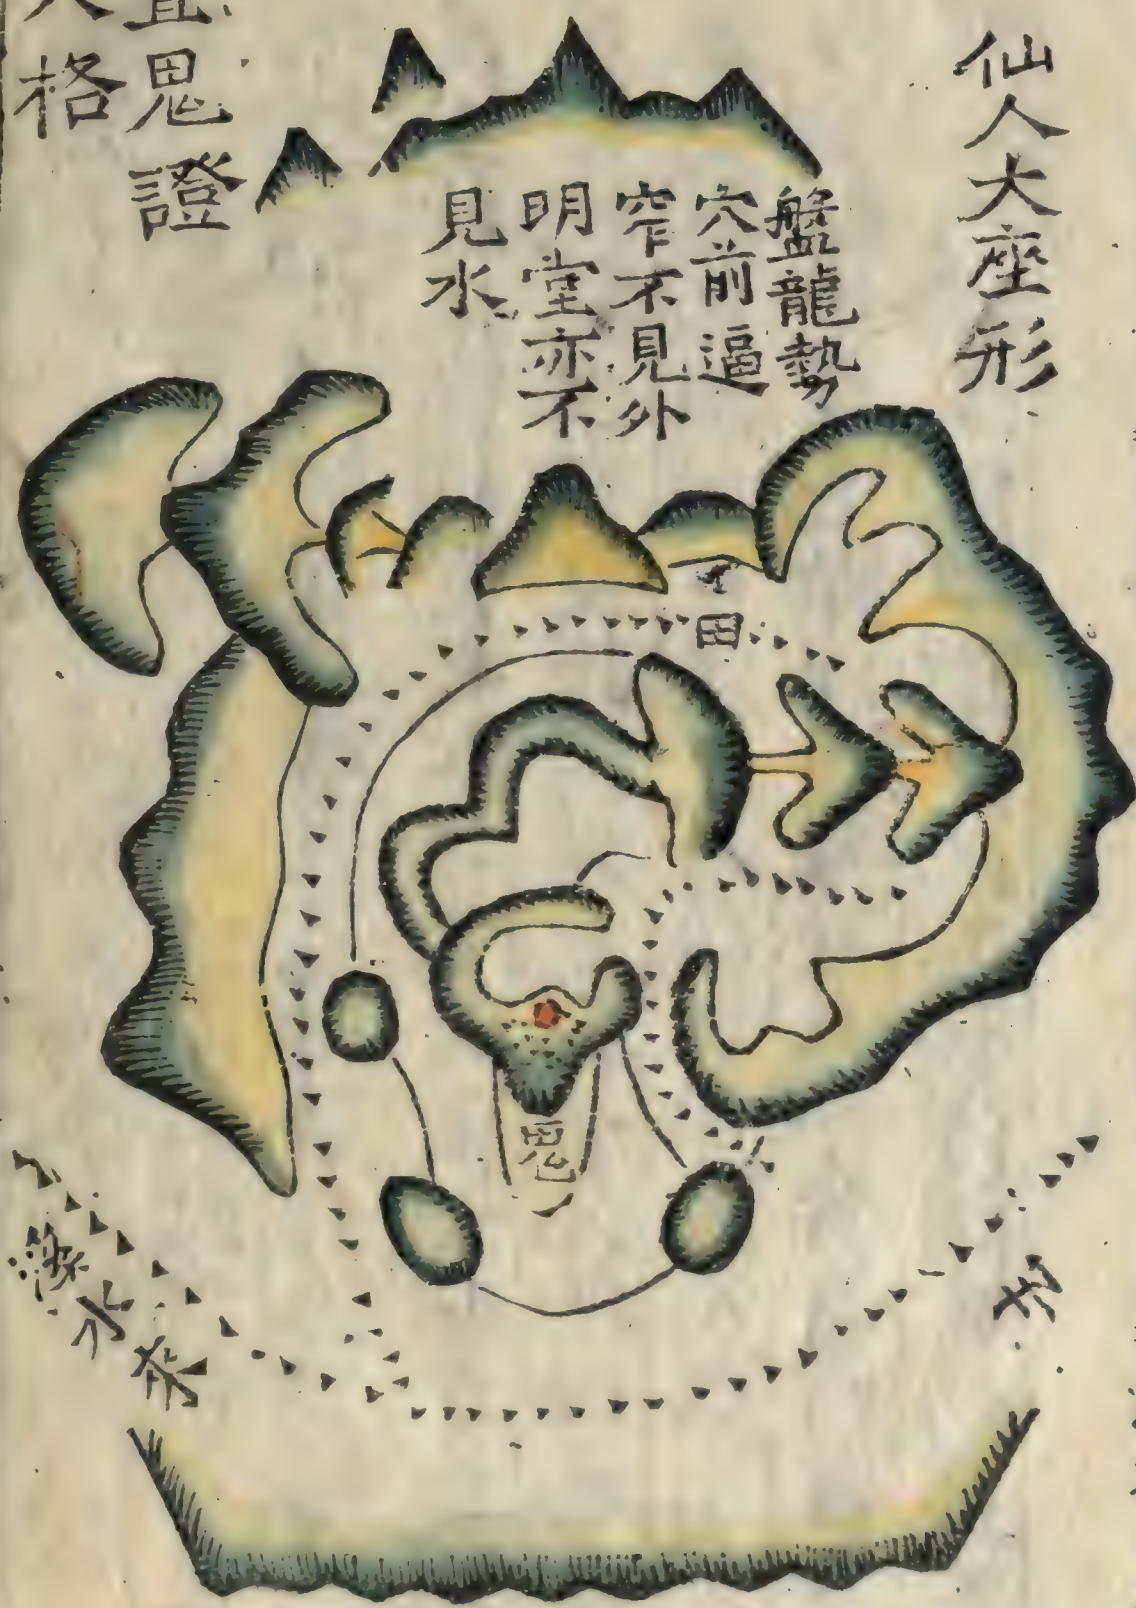 仙人大座形
盤龍勢
穴前逼
窄不見外
明堂亦不
見水
直鬼證
入格
田
鬼
深水來
去